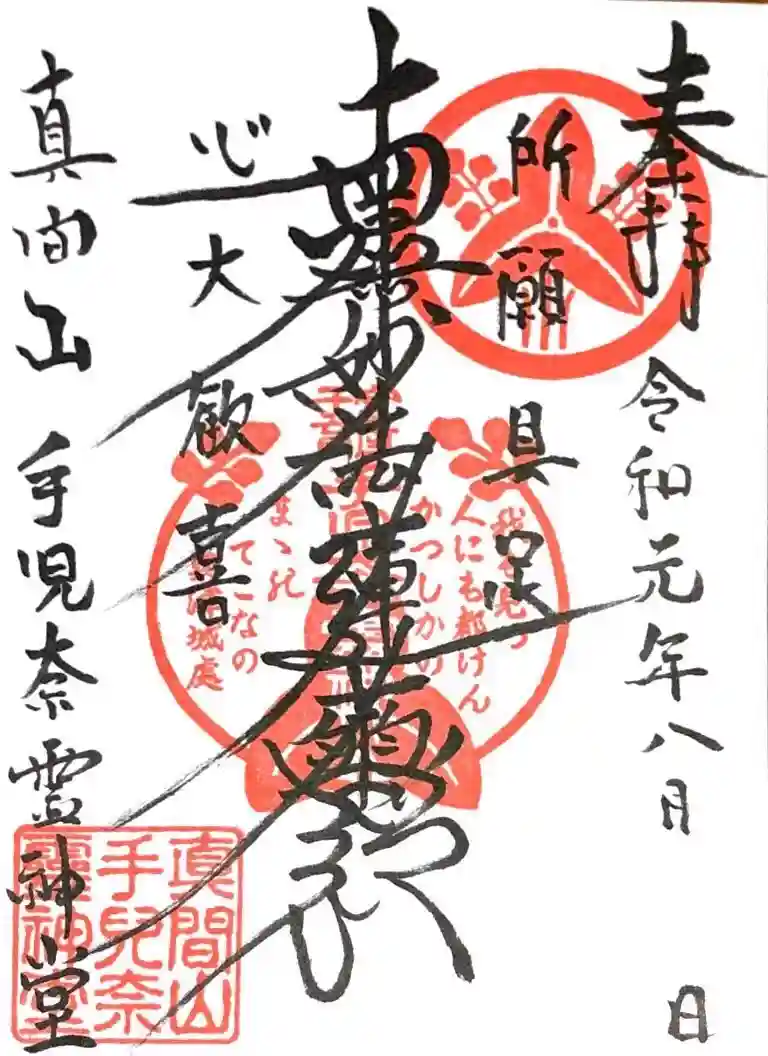 奉拝
令和元年八月 日
所願具足
南無妙法蓮華経
心大歓喜
真间山 手児奈霊神堂
我も見つ
人にも都けん
かつしかの
まゝの
てこなの
城處
真間山
手兒奈
靈神堂